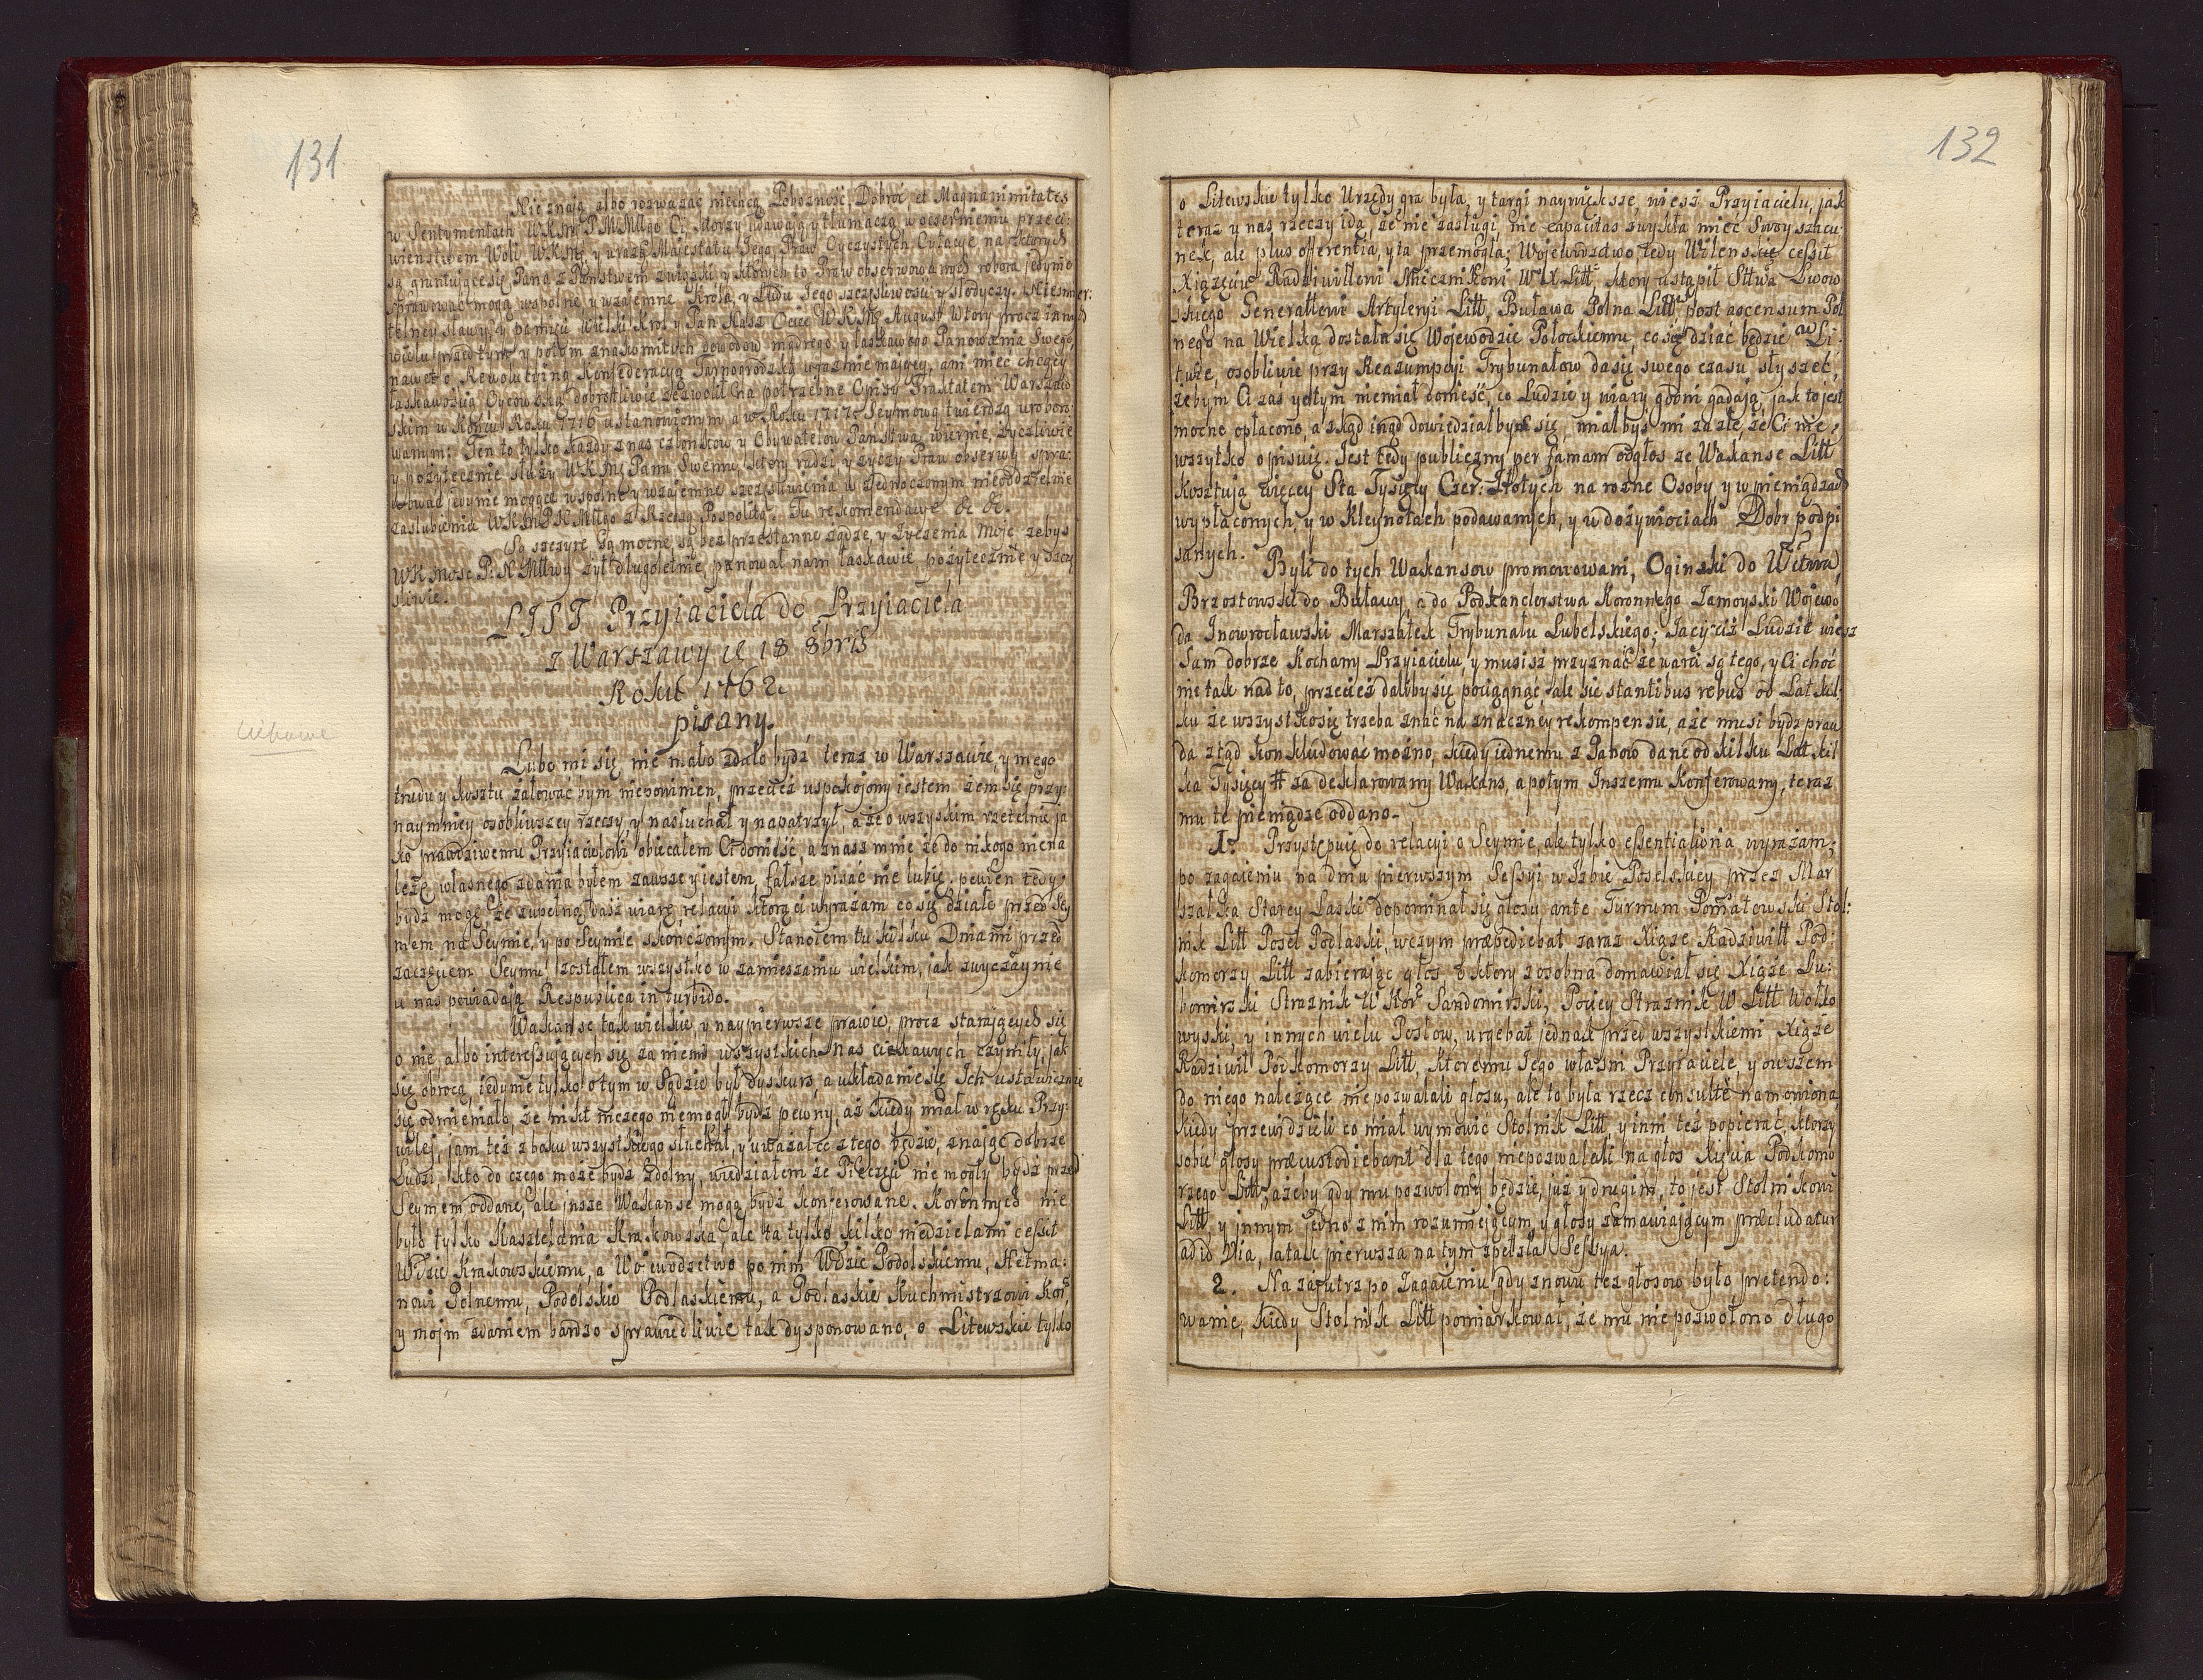 131
Nie znają albo rozważać niechcą Pobożność, Dobroć et Magnanimitates
w Sentymentach WKMci P. M. Młgo Ci, ktorzy udawają y tłumaczą w oczerniemu przeci:
wieństwem Woli WKMci y urazą Majestatu Jego Praw Oyczystych Cytacye na ktorych
są gruntujące się Pana z Państwem związki, y ktorych to Praw obserwowanych robora jedynie
sprawować mogą wspolne y wzajemne Krola y Ludu Jego szczęśliwości y słodyczy. Nieśmier:
telney sławy y pamięci wielki Krol y Pan Nasz Ociec WKMci August Wtory procz innych
wielu przed tym y potym znakomitych dowodow mądrego y łaskawego Panowania Swego,
nawet o Rewolucyiną Konfederacyą Tarnogrodzką urazy nie mający, ani mieć chcący
łaskawością Oycowską dobrotliwie zezwolił na potrzebne Opisy Traktatem Warszaw
skim w Roku 1716 ustanowionym, a w Roku 1717 Seymową twierdzą urobo
wanym: Ten to tylko każdy z nas członkow y Obywatelow Państwa wiernie, życzliwie
y pożytecznie służy WKMci Panu Swemu, ktory radzi y życzy Praw obserwy spra:
wować jedynie mogące wspolne y wzajemne szczęśliwienia w zjednoczonym nieoddzielnie
zaślubieniu WKMci P. N. Młgo z Rzeczą Pospolitą. Tu rekomendacye &c &c.
Są szczyre, są mocne, są bez przestanne żądze, y życzenia moje żebyś
WKMość P. N. Młwy żył długoletnie, panował nam łaskawie pożytecznie y szczę
śliwie.
LIST Przyiaciela do Przyiaciela
z Warszawy d 18 8bris
Roku 1762.
pisany.
ciekawe
Lubo mi się nie mało zdało bydź teraz w Warszawie, y mego
trudu y kosztu żałować bym niepowinien, przecież uspokojony iestem żem się przy:
naymniey osobliwszey rzeczy, y nasłuchał y napatrzył, a że o wszyskim rzetelnie ja
ko prawdziwemu Przyiacielowi obiecałem Ci donieść, a znasz mnie że do nikogo niena
leżę własnego zdania byłem zawsze y iestem, fałsze pisać nie lubię, pewien tedy
bydź mogę, że zupełną dasz wiarę relacyi ktorą ci wyrażam co się działo przed Sey
mem na Seymie, y po Seymie skończonym. Stanołem tu kilku Dniami przed
zaczęciem Seymu zostałem wszystko w zamieszaniu wielkim, jak zwyczaynie
u nas powiadają Respublica in turbido.
Wakanse tak wielkie, y naypierwsze prawie, procz starających się
o nie, albo interessujących się za niemi wszystkich nas ciekawych czyniły, jak
się obrocą, iedynie tylko o tym w Sądzie był dyskurs, a układanie się Ich ustawicznie
się odmieniało, że nikt niczego niemogł bydź pewny, aż kiedy miał w ręku Przy:
wilej, jam też z boku wszystkiego słuchał, y uważał co z tego będzie, znając dobrze
Ludzi kto do czego może bydź zdolny, wiedziałem że Pieczęci nie mogły bydź przed
Seymem oddane, ale insze Wakanse mogą bydź konferowane. Koronnych nie
było tylko Kasztelania Krakowska, ale ta tylko kilko niedzielami cessit
Wdzie Krakowskiemu, a Wojewodztwo po nim Wdzie Podolskiemu, Hetma:
nowi Polnemu, Podolskie Podlaskiemu, a Podlaskie Kuchmistrzowi Kor,
y moim zdaniem bardzo sprawiedliwie tak dysponowano, o Litewskie tylko
132
o Litewskie tylko Urzędy gra była, y targi naywiększe, wiesz Przyiacielu, jak
teraz y nas rzeczy idą, że nie zasługi, nie capacitas zwykła mieć Swoy szacu:
nek, ale plus offerentia, y ta przemogła; Wojewodztwo tedy Wileńskie cessit
Xiążęciu Radziwiłłowi Miecznikowi WXLitt ktory ustąpił Sttwa Lwow
skiego Generałowi Artyleryi Litt, Buława Polna Litt post ascensum Pol
nego na Wielką dostała się Wojewodzie Połockiemu, co się dziać będzie w Li:
twie, osobliwie przy Reasumpcyi Trybunałow da się swego czasu słyszeć,
żebym Ci zaś y o tym niemiał donieść, co Ludzie y wiary godni gadają, jak to jest
mocno opłacono, a zkąd inąd dowiedziałbyś się, miałbyś mi za złe, że Ci nie
wszytko opisuię. Jest tedy publiczny per famam odgłos ze Wakanse Litt
kosztują więcey Sta Tysięcy Czer: Złotych na rozne Osoby y w pieniądzach
wypłaconych, y w kleynotach podawanych, y w dożywociach Dobr podpi
sanych.
Byli do tych Wakansow promowowani, Oginski do Wctwa,
Brzostowski do Buławy, a do Podkanclerstwa Koronnego Zamoyski Wojewo
da Inowrocławski Marszałek Trybunału Lubelskiego; Jacy ciż Ludzie wiesz
Sam dobrze Kochany Przyiacielu, y musisz przyznać że warci są tego, y Ci choć
nie tak nad to, przecież daliby się pociągnąć ale sic stantibus rebus od Lat kil:
ku że wszystko się trzeba znać na znaczney rekompensie, a że musi bydz praw
da ztąd konkludować możno, kiedy iednemu z Panow dane od kilku Lat kil
ka Tysięcy # za deklarowany Wakans, a potym Inszemu konferowany, teraz
mu te pieniądze oddano.
1. Przystępuię do relacyi o Seymie, ale tylko essentialiora wyrażam;
po zagaieniu na dniu pierwszym Sessyi w Izbie Poselskiey przez Mar
szałka Starey Laski dopominał się głosu ante Turnum Poniatowski Stol:
nik Litt Poseł Podlaski, wczym præpediebat zaraz Xiąże Radziwiłł Pod:
komorzy Litt zabierając głos o ktory zosobna domawiał się Xiąże Lu:
bomirski Strażnik W Kor Sandomirski, Pociey Strażnik W Litt Wołko
wyski, y innych wielu Posłow, urgebat jednak przed wszystkiemi Xiąże
Radziwił Podkomorzy Litt, ktoremu Jego właśni Przyiaciele, y owszem
do niego należące niepozwalali głosu, ale to była rzecz consulte namowiona,
kiedy przewidzieli co miał wymowić Stolnik Litt, y inni też popierać, ktorzy
sobie głosy præcustodiebant dla tego niepozwalali na głos Xięcia Podkomo
rzego Litt, ażeby gdy mu pozwolony będzie, już y drugim, to jest Stolnikowi
Litt, y innym jedno z nim rozumiejącym, y głosy zamawiającym præcludatur
ad id via, a tak pierwsza na tym zpełzła Sessya.
2. Nazajutrz po Zagaieniu, gdy znowu tez głosow było pretendo:
wanie, kiedy Stolnik Litt pomiarkował, że mu nie pozwolono długo